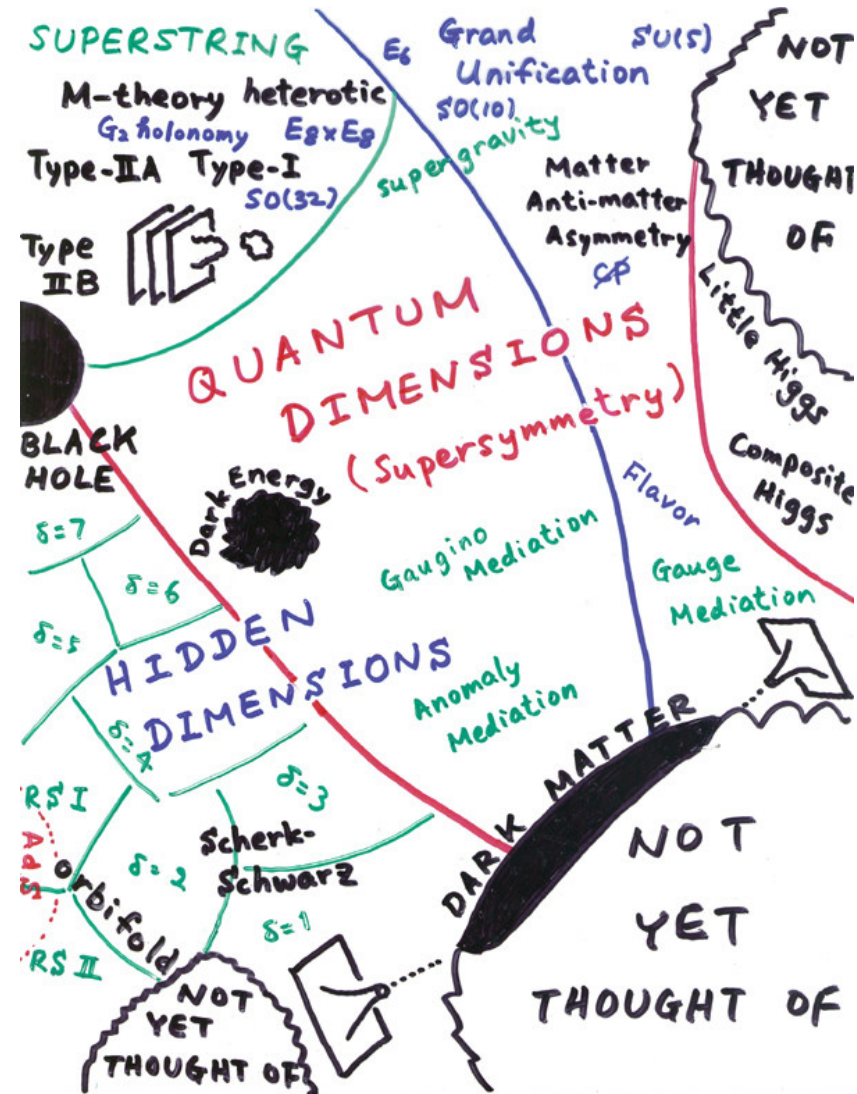 SUPERSTRING
M-theory heterotic
G₂ holonomy E₈×E₈
Type-IIA Type-I
SO(32)
Type
IIB
E₆ Grand SU(5)
Unification
SO(10)
supergravity
Matter
Anti-matter
Asymmetry
CP
NOT
YET
THOUGHT
OF
Little Higgs
Composite
Higgs
QUANTUM
DIMENSIONS
(Supersymmetry)
BLACK
HOLE
Dark Energy
Flavor
Gaugino
Mediation
Gauge
Mediation
Anomaly
Mediation
δ=7
δ=6
δ=5
HIDDEN
DIMENSIONS
δ=4
δ=3
RS I
AdS
orbifold
δ=2
Scherk-
Schwarz
δ=1
RS II
DARK MATTER
NOT
YET
THOUGHT OF
NOT
YET
THOUGHT OF